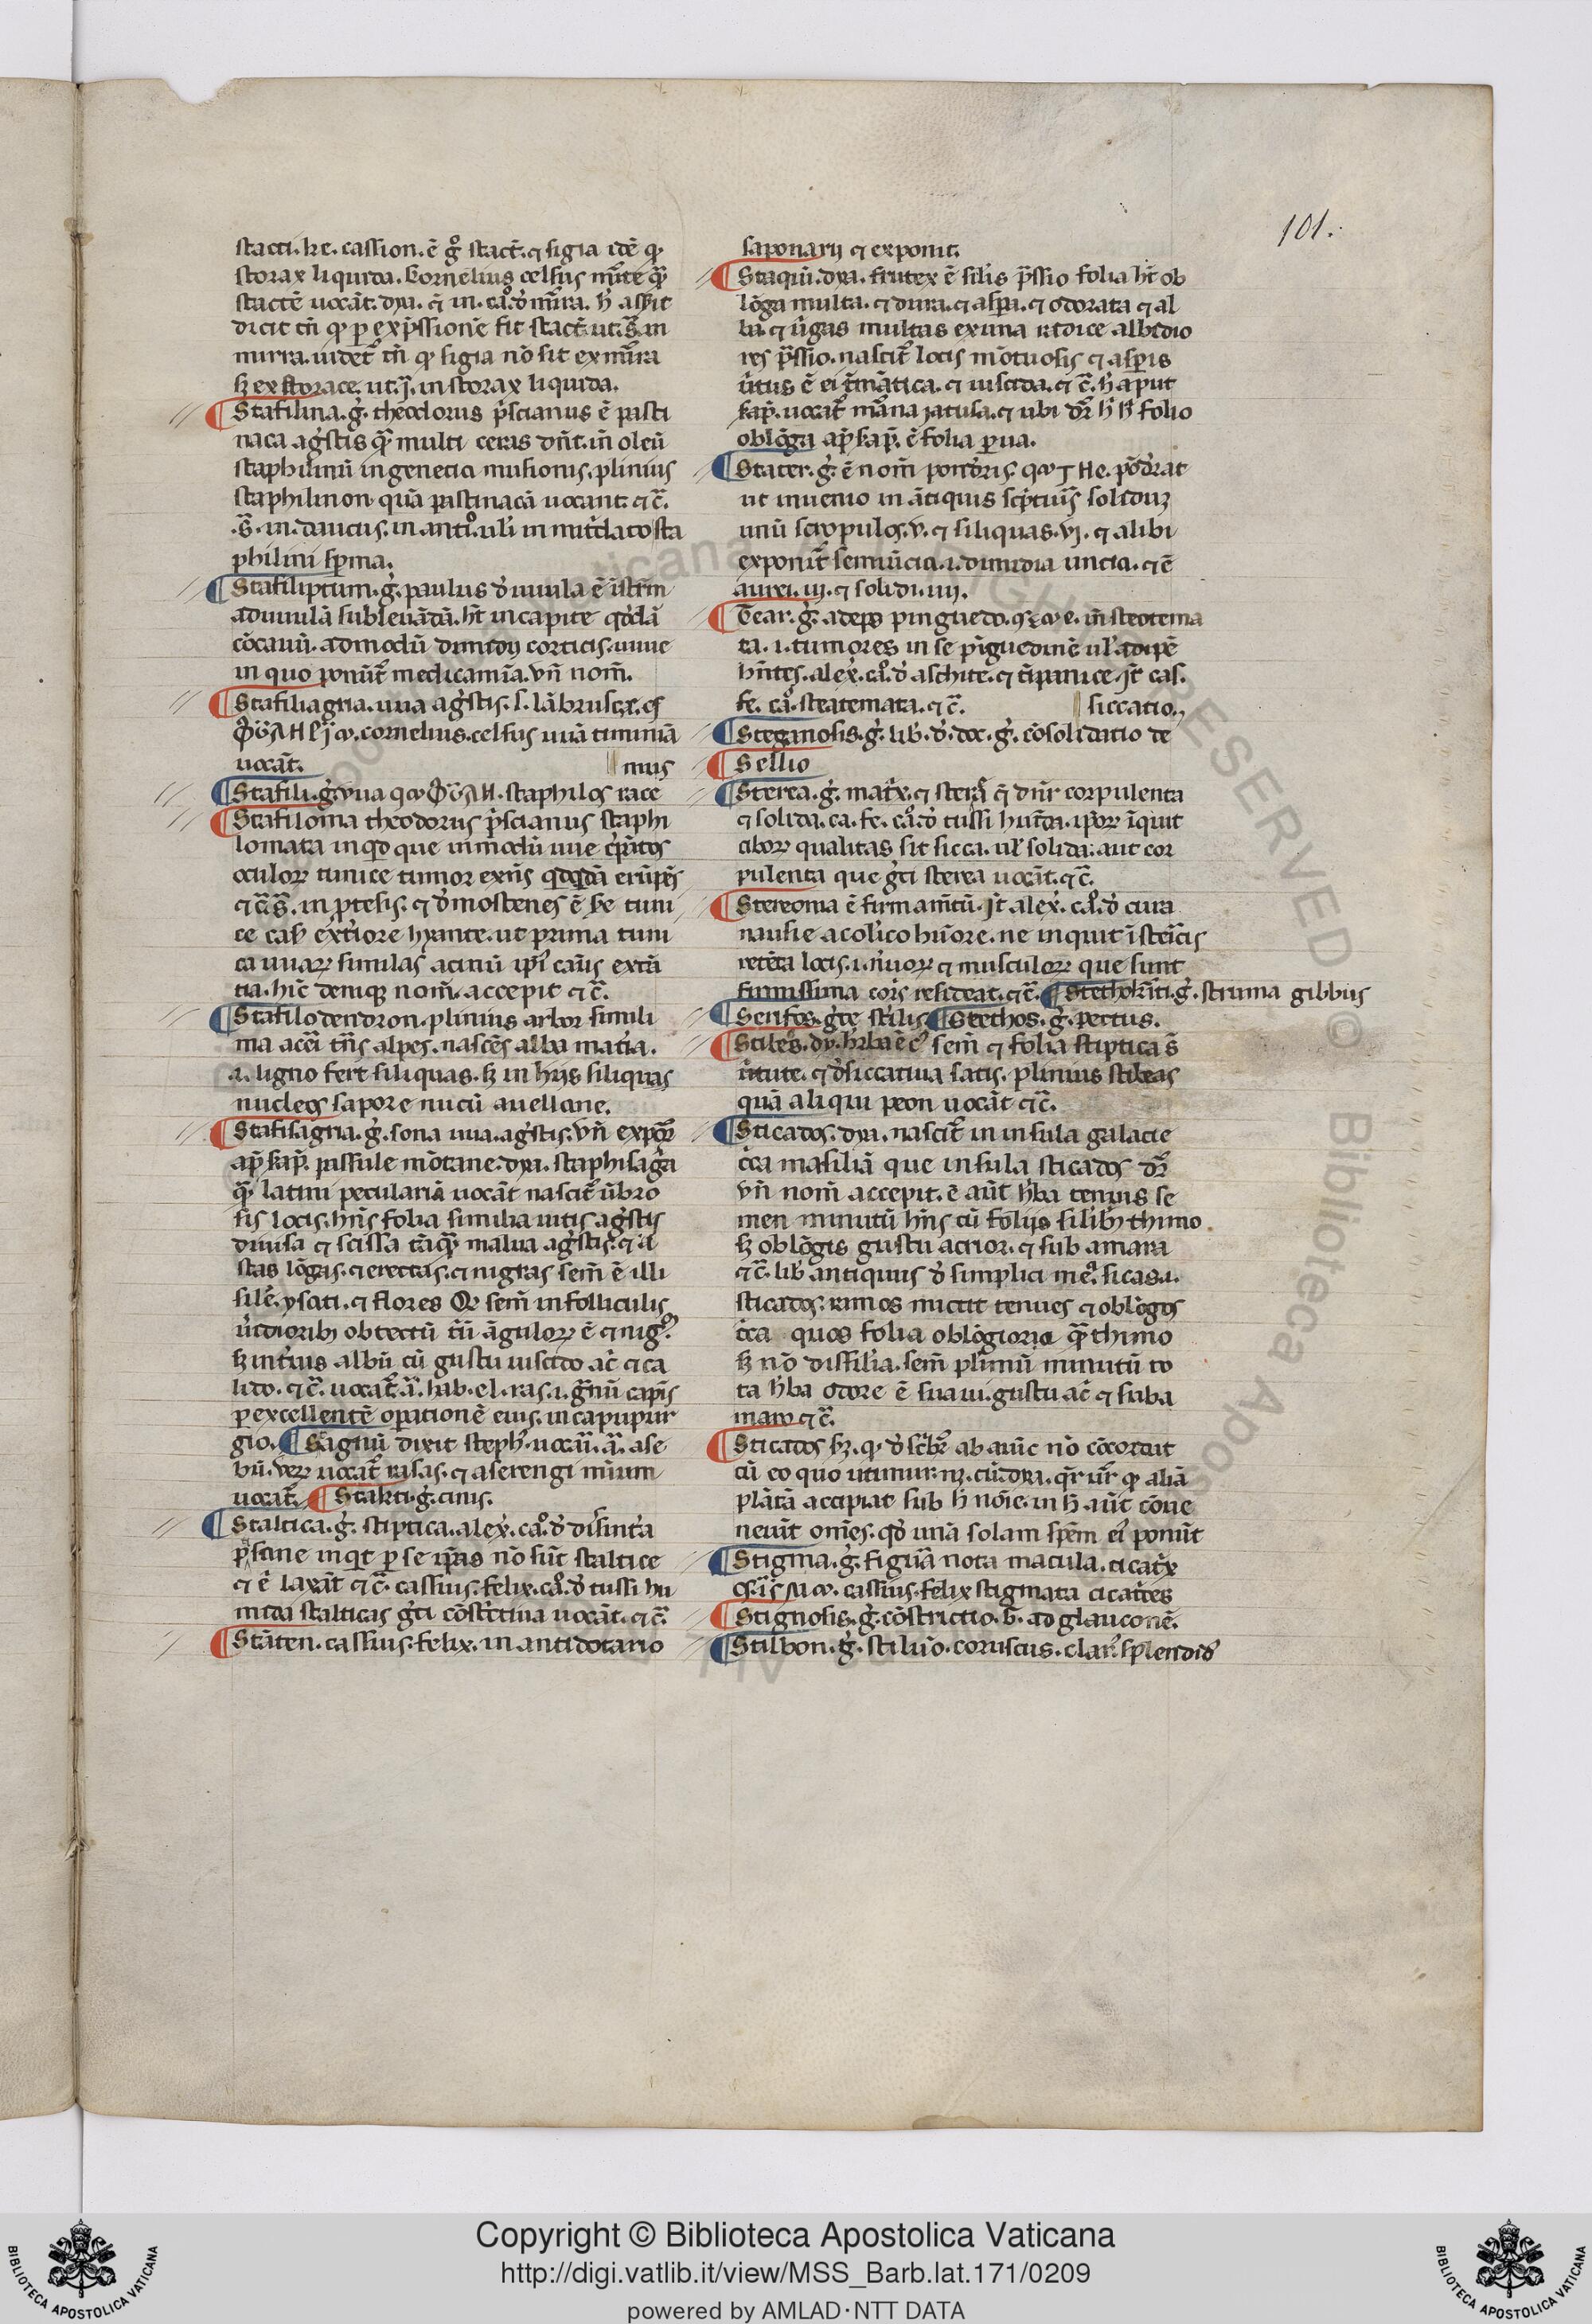 101.
stacti. he. cassion. ē g̊ stact̄. ⁊ sigia idē ꝙ
storax liquida. Cornelius celsus
stactē uocāt. dya.
dicit tn̄ ꝙ ꝑ exp̄ssionē fit stact̄ ut.s̄. in
mirra. uidet᷑ tn̄ ꝙ sigia nō sit ex mirra
sꝫ ex storace. ut.j. in storax liquida.
Stafilina. g̊. theodorus p̄scianus ē pasti
naca ag̊stis qm̄ multi ceras dn̄t. in oleū
staphilinū in genecia musionis. plinius
staphilinon quā pastinacā uocant. ⁊ c̄.
.s̄. in. daucus. in antio. ul̓i in mitridato sta
philini sperma.
Stafiliptum. g̊. paulus d̓ uuula ē istr̄m
ad uuulā subleuādā. ht̄ in capite qd̓dā
cōcauū. ad modū dimidij corticis. nuue
in quo ponūt᷑ medicamīa. vn̄ nom̄.
Stafiliagria. uua ag̊stis. s. lābrusca. eſ
cornelius. celsus uuā taminiā
uocāt.
mus
Stafili. g̊. vua staphilos race
Stafiloma theodorus p̄scianus staphi
lomata inqd̓ que in modū uue
oculoꝝ tunice tumor exn̄s qd̓qd̓ā erūpēs
⁊ c̄. s̄. in ptesis. ⁊ d̓mostenes ē he tuni
ce cas̄ ext̓iore hyante. ut prima tuni
ca uuaꝝ similas acinū ip̄i caūs extā
tia. hīc deniqꝫ nom̄. accepit ⁊ c̄.
Stafilodendron. plinius arbor simili
ma aceri tn̄s alpes. nascēs alba mat̓ia.
.i. ligno fert siliquas. sꝫ in hijs siliquas
nucleos sapore nucū auellane.
Stafisagria. g̊. sona uua. ag̊stis. vn̄ expōr᷑
ap̄ sap̄. passule mōtane. dya. staphisag̓a
qm̄ latini peculariā uocāt nascit᷑ ūbro
sis locis. hn̄s folia similia uitis ag̊stis
diuisa ⁊ scissa tāqm̄ malua ag̊stis. ⁊ a
stas lōgas. ⁊ erectas. ⁊ nigras sem̄ ē illi
silē. ysati. ⁊ flores Qd̓ sem̄ in folliculis
uīdiorib̓ obtectū t̓ū āguloꝝ ē ⁊ nig̊.
sꝫ int̓ius albū cū gustu uiscido ac̄ ⁊ ca
lido. ⁊ c̄. uocat᷑ ā. hab. el. ras. i. g̓nū capit̓s
ꝑ excellentē oꝑationē eius. in capipur
gio. Sagnū dixit steph̓. uocāī. ā. ase
bū. veꝝ uocat᷑ rasas. ⁊ aserengi mīum
uocat᷑. Stakti. g̊. cinis.
Staltica. g̊. stiptica. alex̓. cao. d̓ disint̓ia
ꝑ se ip̄as nō sūt staltice
⁊ ē laxāt ⁊ c̄. cassius. felix. cao. d̓ tussi hu
mida stalticas g̓ci cōst̓ctiua uocāt. ⁊ c̄
Stāten. cassius. felix. in antidotario
saponarij ⁊ exponit.
Staqui. dya. frutex ē sil̓is p̄ssio folia ht̄ ob
lōga multa. ⁊ dura. ⁊ asꝑa. ⁊ odorata ⁊ al
ba. ⁊ ūgas multas ex una radice albidio
res p̄ssio. nascit᷑ locis mōtuosis ⁊ asꝑis
uītus ē ei t̓mātica. ⁊ uiscida. ⁊ c̄. h̓ aput
sap̄. uocat᷑ māna ⁊ ubi dr̄ h̓ folio
oblōga ap̄ sap̄. ē folia ꝑua.
Stater. g̊. ē nom̄ pond̓is. pōd̓rat
ut inuenio in ātiquis sc̓ptuīs soliduꝫ
unū scropulos. v. ⁊ siliquas. vj. ⁊ alibi
exponit᷑ semūcia. i. dimidia uncia. ⁊ ē
aurei. iij. ⁊ solidi. iiij.
Tear. g̊. adeps pinguedo. in steotema
ta. i. tumores in se p̄guedinē ul̓ adipē
hn̄tes. alex̓. cao. d̓ aschite. ⁊ tīpanite. It̄ cas.
fe. cao. steatemata. ⁊ c̄.
siccatio.
Steganosis. g̊. lib̓. d̓. doc. g̊. cōsolidatio de
Sellio
Sterea. g̊. mat̓x. ⁊ stera q̄ dn̄r corpulenta
⁊ solida. ca. fe. cao. d̓ tussi humīda. ip̄oꝝ īquit
ciboꝝ qualitas sit sicca. ul̓ solida: aut cor
pulenta que g̓ci sterea uocāt. ⁊ c̄.
Stereoma ē firmamtū. It̄ alex̓. cao. d̓ cura
nausie a colico hūore. ne inquit
retēta locis. i. n̓uoꝝ ⁊ musculoꝝ que sunt
firmissima coīs resideat. ⁊ c̄. g̊. struma gibbus
Serifos. g̊ce st̓ilis Stethos. g̊. pectus.
Stibes. dy. h̓ba ē c̓ sem̄ ⁊ folia stiptica s̄
ūtute. ⁊ d̓siccatiua satis. plinius stibeas
quā aliqui peon uocāt ⁊ c̄.
Sticados. dya. nascit᷑ in insula galacie
c̓ca masiliā que insula sticados dr̄
vn̄ nom̄ accepit. ē aūt h̓ba tenuis se
men minutū hn̄s cū folijs silib̓ thimo
sꝫ oblōgis gustu acrior. ⁊ sub amara
⁊ c̄. lib̓ antiquus d̓ simplici meo. sicas.i.
sticados. ramos mictit tenues ⁊ oblōgos
c̓ca quos folia oblōgiora qm̄ thimo
sꝫ nō dissilia. sem̄ plīmū minutū to
ta h̓ba odore ē suaui. gustu ac̄ ⁊ suba
maro ⁊ c̄.
Sticados sꝫ. ꝙ. d̓sc̓br̄ ab auic̄ nō cōcordat
cū eo quo utimur ꝙ aliā
plātā accipiat sub h̓ noīe. in h̓ aūt cōue
neiūt om̄es. qd̓ unā solam spēm ei̓ ponūt
Stigma. g̊. figura nota macula. cicat̓x
cassius. felix stigmata cicat̓ces
Stignosis. g̊. cōstrictio. G̅. ad glauconē.
Stilbon. g̊. stiluō. coruscus. clar̓. splendid̓
Copyright © Biblioteca Apostolica Vaticana
http://digi.vatlib.it/view/MSS_Barb.lat.171/0209
powered by AMLAD·NTT DATA